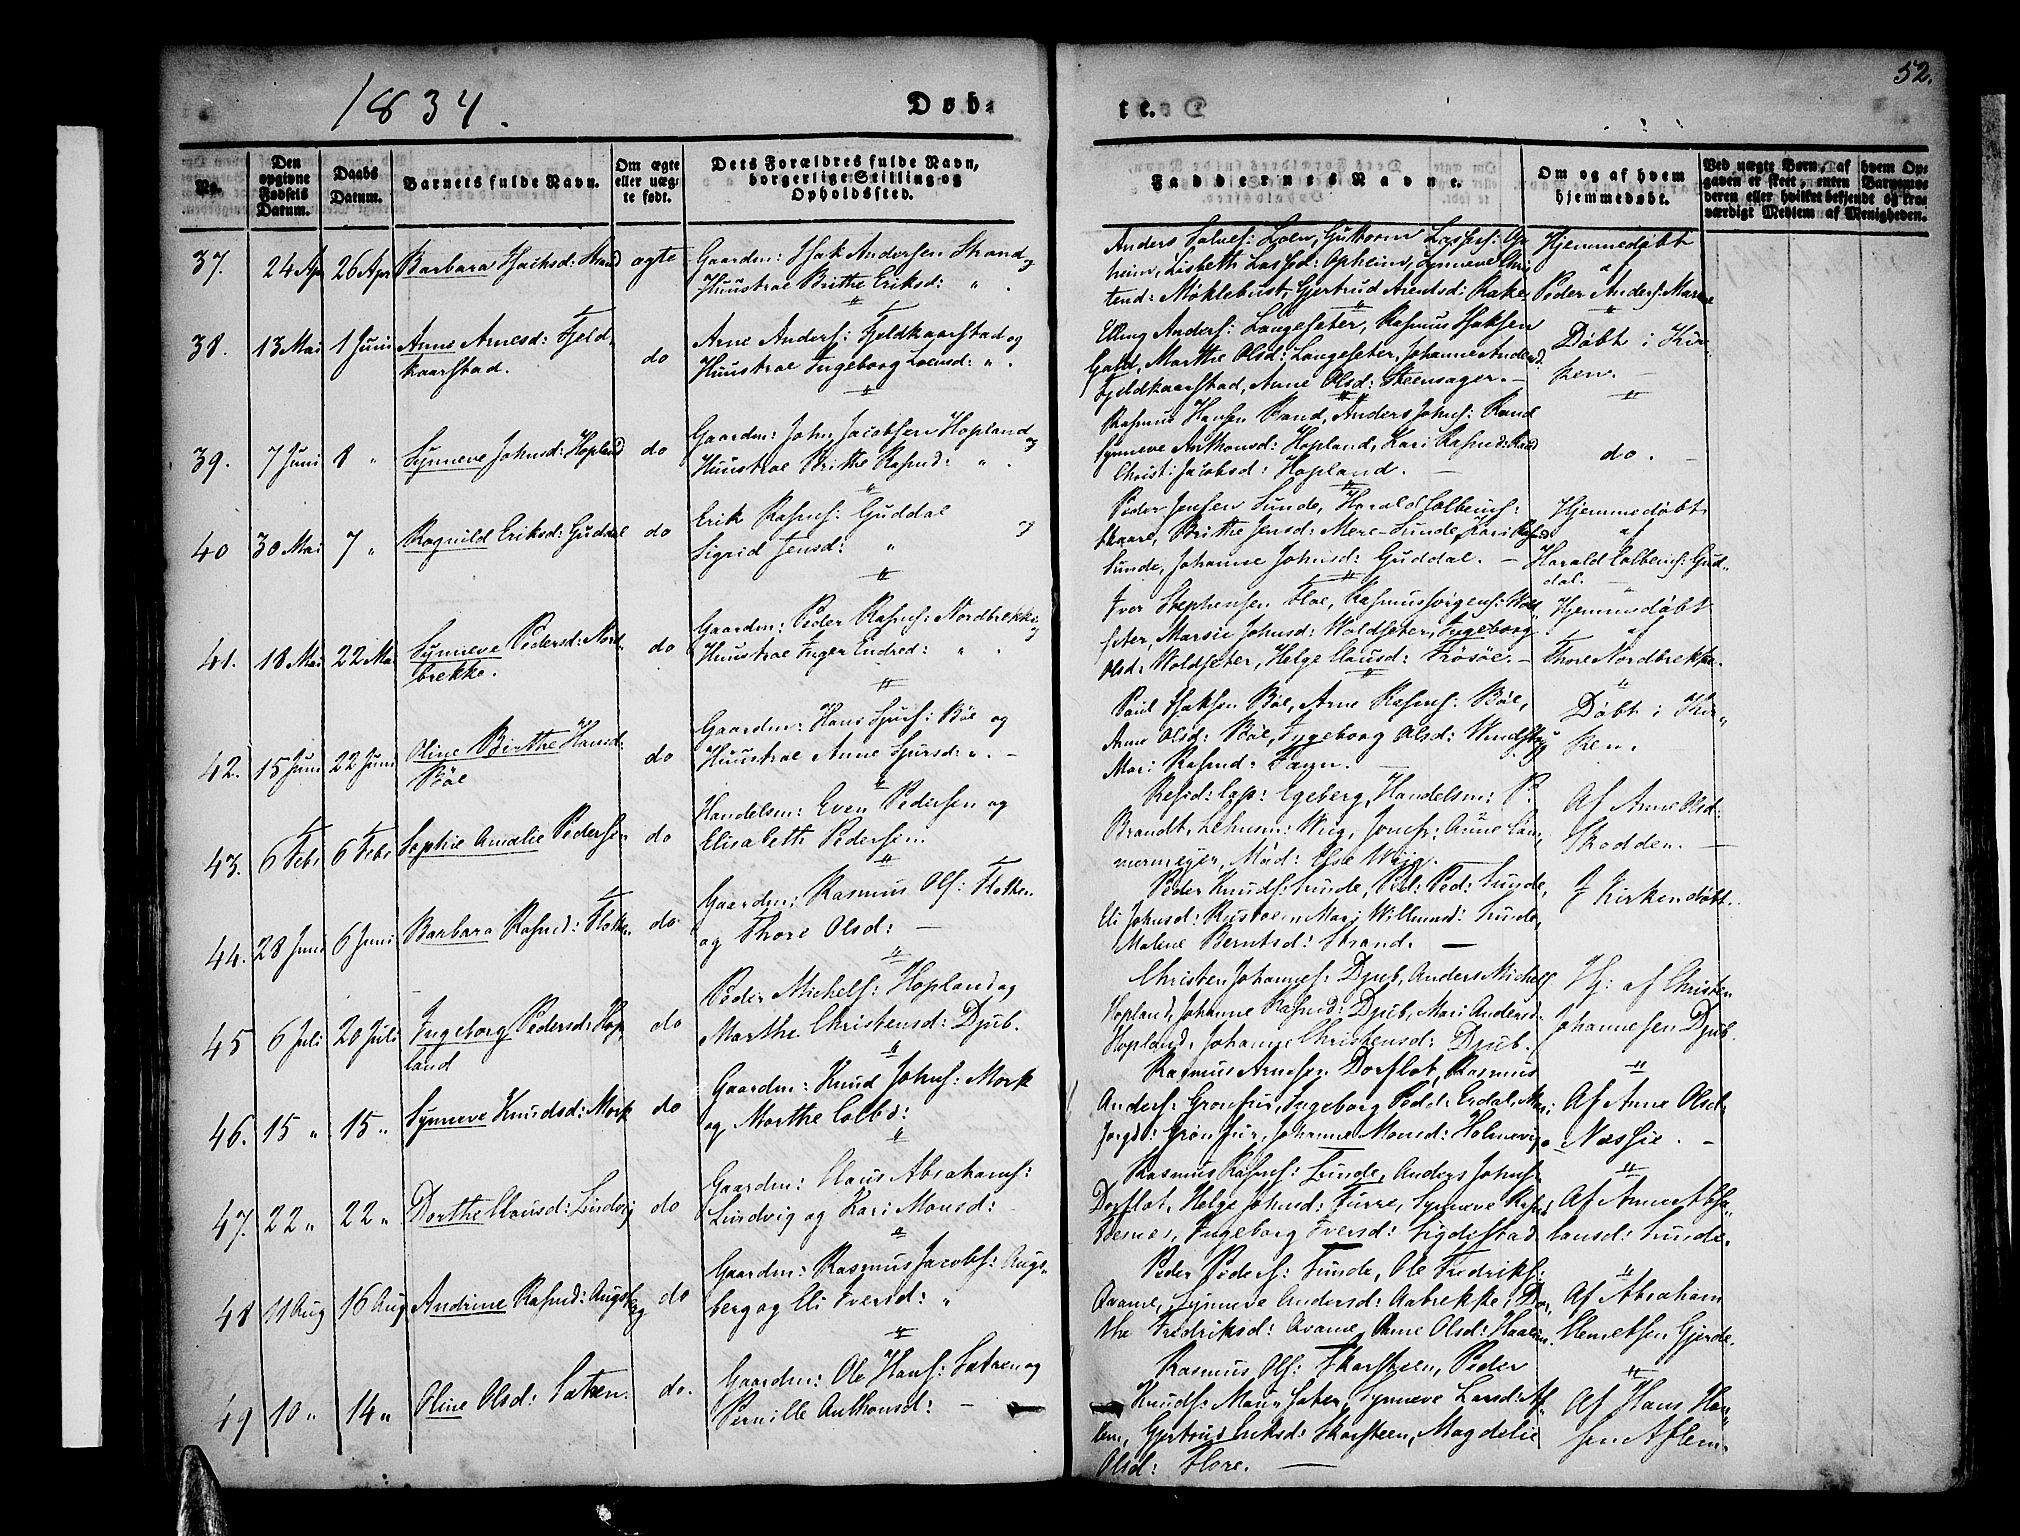 52.
1834.
Døb-
te.
No.
Den opgivne Fødsels Datum.
Daabs Datum.
Barnets fulde Navn.
Om ægte eller uæg- te født.
Dets Forældres fulde Navn, borgerlige Stilling og Opholdssted.
Faddernes Navne.
Om og af hvem hjemmedøbt.
Ved uægte Børn, af hvem Op-
gaven er skeet, enten Barnemo-
deren eller hvilket bekjendt og tro-
værdigt Medlem af Menigheden.
37. 24 Apr 26 Apr Barbara Isaksd: Strand ægte Gaarden: Isak Andersen Strand og
Huustroe Brithe Eriksd: "
Anders Salvef: Loen, Guttorm
heim, Lisbeth Lassed: Opheim, Synneve Chri-
tend: Møklebust, Gjertrud Arentsd: Rake
Hjemmedøbt
af
Peder Anders:
38. 13 Mai 1 Juni Anne Arnesd: Fjeld-
kaarstad.
do
Arne Anders: Fjeldkaarstad og
Huustroe Ingeborg Loensd: "
Elling Anders: Langeseter, Rasmus Isaksen
Marthe Olsd: Langeseter, Johanne Andersd:
Fjeldkaarstad, Anne Olsd: Steensager. -
Døbt i Kir-
ken. -
39. 7 Juni 8 " Synneve Johnsd: Hopland do Gaarden: John Jacobsen Hopland og
Huustroe Brithe Rasmd: "
Rasmus Hansen Rand, Anders Johns: Rand
Synneve Anthonsd: Hopland, Kari Rasmd: Rand
Christ: Jacobsd: Hopland. -
do. -
40 30 Mai 7 " Ragnild Eriksd: Guddal do Erik Rasms: Guddal og
Sigrid Jensd: "
Peder Jensen Sunde, Harald Colbeins:
Skaare, Brithe Jensd: Mere-Sunde, Kari
Sunde, Johanne Johnsd: Guddal. -
Hjemmedøbt
af
Harald Colbeins: Gud-
dal.
41. 18 Mai 22 Mai Synneve Pedersd: Nord-
brekke.
do
Gaarden: Peder Rasms: Nordbrekke og
Huustroe Inger Endred: "
Iver Stephensen Floe, Rasmus Jørgens: Wold-
seter, Marsie Johnsd: Woldseter, Ingeborg
Olsd: Woldseter, Helge Clausd: Frøsøe. -
Hjemmedøbt
af
Thore Nordbrekke.
42. 15 Juni 22 Juni Oline Birthe Hansd:
Bøe
do
Gaarden: Hans Sjurs: Bøe og
Huustroe Anne Sjursd: " -
Paul Isaksen Bøe, Arne Rasms: Bøe,
Anne Olsd: Bøe, Ingeborg Olsd:
Mari Rasmd: -
Døbt i Kir-
ken.
43. 6 Febr 6 Febr Sophie Amalie Pedersen do Handelsm: Even Pedersen og
Elisabeth Pedersen.
Resid: Cap: Egeberg, Handelsm: P.
Brandt, Lehnsm: Wiig, Jomfr: Anne Cam-
mermeyer, Mad: Else Wiig.
Af Anne Olsd:
Skodden. -
44. 28 Juni 6 Juni Barbara Rasmd: Flotten do Gaarden: Rasmus Ols: Flotten
og Thore Olsd: -
Peder Knuds: Sunde, Ped: Ped: Sunde,
Eli Johnsd: Mari Willumsd: Sunde,
Malene Berntsd: Strand. -
I Kirken døbt.
45 6 Juli 20 Juli Ingeborg Pedersd: Hop-
land
do
Peder Michels: Hopland og
Marthe Christensd: Djub.
Christen Johannes: Djub, Anders Michels
Hopland, Johanne Rasmd: Djub, Mari Andersd:
Hopland, Johanne Christensd: Djub.
Hj: af Christen
Johannesen Djub.
46. 15 " 15 " Synneve Knudsd: Mork do Gaarden: Knud Johns: Mork
og Marthe Colbd:
Rasmus Arnesen Dorflot, Rasmus
Anders: Ingeborg Pedd: Eidal, Mari
Jørgd: Johanne Monsd: Holmevig
Af Anne Olsd:
Næssie. -
47. 22 " 22 " Dorthe Clausd: Lindvig do Gaarden: Claus Abrahams:
Lindvig og Kari Monsd: -
Rasmus Rasms: Sunde, Anders Johns:
Dorflot, Helge Johnsd: Furre, Synneve
Ingeborg Iversd: Sigdestad
Af Anne Abso-
lonsd: Sunde.
48 11 Aug 16 Aug Andrine Rasmd: Augsberg do Gaarden: Rasmus Jacobs: Augs-
berg og Eli Iversd: "
Peder Peders: Tunde, Ole Fredriks:
Qvame, Synneve Andersd: Aabrekke, Dor-
the Fredriksd: Qvame, Anne Olsd:
Af Abraham
Clemetsen Gjerde.
49 10 " 14 " Oline Olsd: Sætren. do. Gaarden: Ole Hans: Sætren og
Pernille Anthonsd: -
Rasmus Ols: Skarsteen, Peder
Knuds: Synneve Larsd: Af-
lem, Gjertrud Skarsteen, Magdelie
Olsd: Flore. -
Af Hans Han-
sen Aflem.